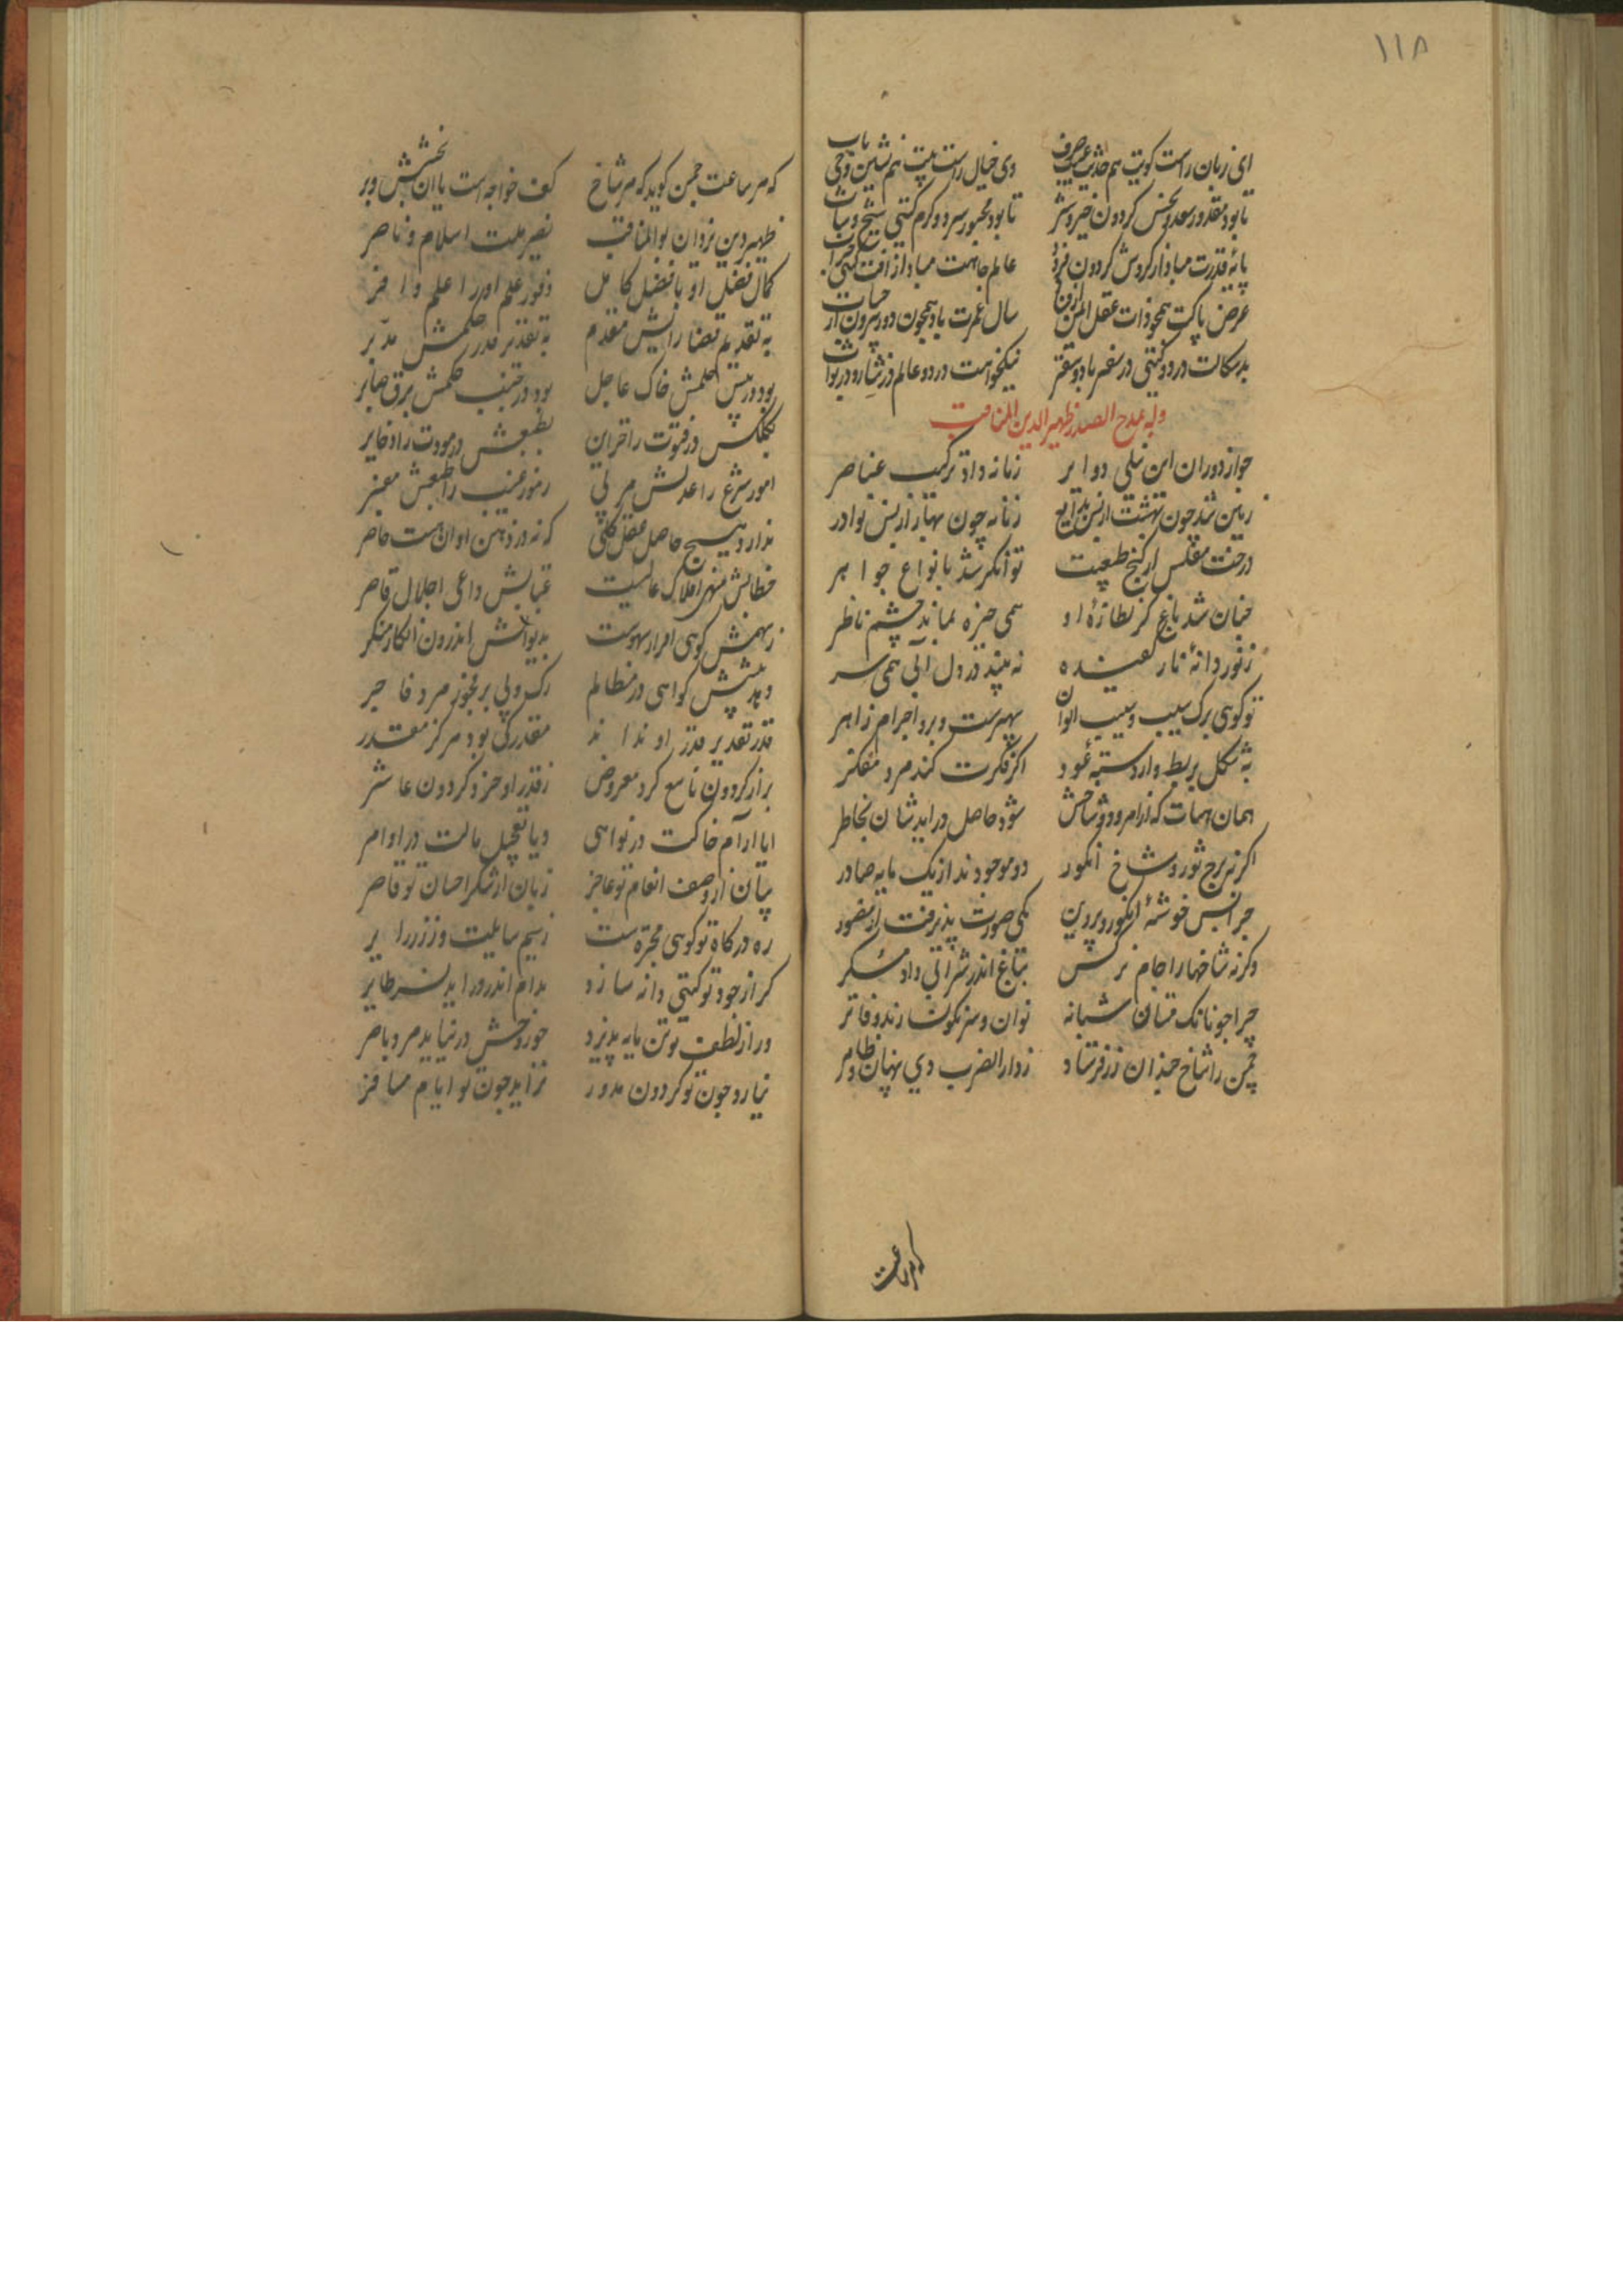 ۱۱۸
ای زبان راست کویت هم حدیث غیب صرف وی خیال راست بینت هم نشین وحی ناب
تا بود مقدور سعد و نحس کردون خیر و شر تا بود مجبور سرد و کرم کیتی شیخ و شاب
پایهٔ قدرت مباد از کردش کردون فرود عالم جاهت مباد از آفت کیتی خراب
عرض پاکت همچو ذات عقل ایمن از فنا سال عمرت باد همچون دور بیرون از حساب
بدسکالت در دو کیتی در سفر باد و سقر نیکخواهت در دو عالم در ثنا و در ثواب
وله یمدح الصدر ظهیر الدین المناقب
جو از دوران این نیلی دوایر زمانه داد ترکیب عناصر
زمین شد چون بهشت از بس بدایع زمانه چون بهار از بس نوادر
درخت مفلس از کنج طبیعت توانکر شد بانواع جواهر
جنان شد باغ کز نظارهٔ او همی خیره بماند چشم ناظر
ز نور دانهٔ نار کفیده نه بیند در دل آبی همی سر
تو کویی برک سیب و سیب الوان سپهرست و برو اجرام زاهر
به شکل بربط و از دسته عود اکر فکرت کند مرد مفکر
همان هیأت که از امرود و شاخش شود حاصل درآید شان بخاطر
اکر نه برج ثور و شاخ انکور دو موجودند از یک مایه صادر
جرا بس خوشهٔ انکور و پروین یکی صورت پذیرفت از مصور
وکرنه شاخها را جام نرکس بباغ اندر شرابی داد مسکر
چرا جونانک مستان شبانه نوان و سرنکونسارند و فاتر
چمن را شاخ جندان زر فرستاد ز دار الضرب دی پنهان و ظاهر
که هر ساعت
که هر ساعت جمن کوید که هر شاخ کف خواجه است یا آن بخشش وبر
ظهیر دین یزدان بوالمناقب نصیر ملت اسلام و ناصر
کمال فضل او با فضل کامل وفور علم او را علم وافر
به تقدیم قضا رایش مقدم به تقدیر قدر حکمش مدبر
بود در پیش حلمش خاک عاجل بود در جنب حکمش برق صابر
بکلکش در فتوت را خزاین بطبعش در مودت را ذخایر
امور شرع را عدلش مربی رموز غیب را طبعش معبر
ندارد هیچ حاصل عقل کلی که نه در ذهن او آن هست حاضر
خطابش منهی افلاک عالیست عتابش داعی اجلال قاهر
ز سهمش کویی اقرار سهوست بدیوانش اندرون انکار منکر
وبد پیشش کواهی در مظالم رک و پی بر فجور مرد فاجر
قدر تقدیر قدر او نداند مقدر کی بود هرکز مقدر
براز کردون تاسع کرد معروض ز قدر او حزد کردون عاشر
ایا آرام خاکت در نواهی ویا تعجیل بادت در اوامر
بیان از وصف انعام تو عاجز زبان از شکر احسان تو قاصر
ره درکاه تو کویی مجره ست ز سیم سایلت و زر زایر
کر از جود تو کیتی دانه سازد بدام اندر آید نسر طایر
ور از لطف تو تن مایه پذیرد جو روحش درنیابد مرد باصر
نیارد جون تو کردون مدور نزاید جون تو ایام مسافر